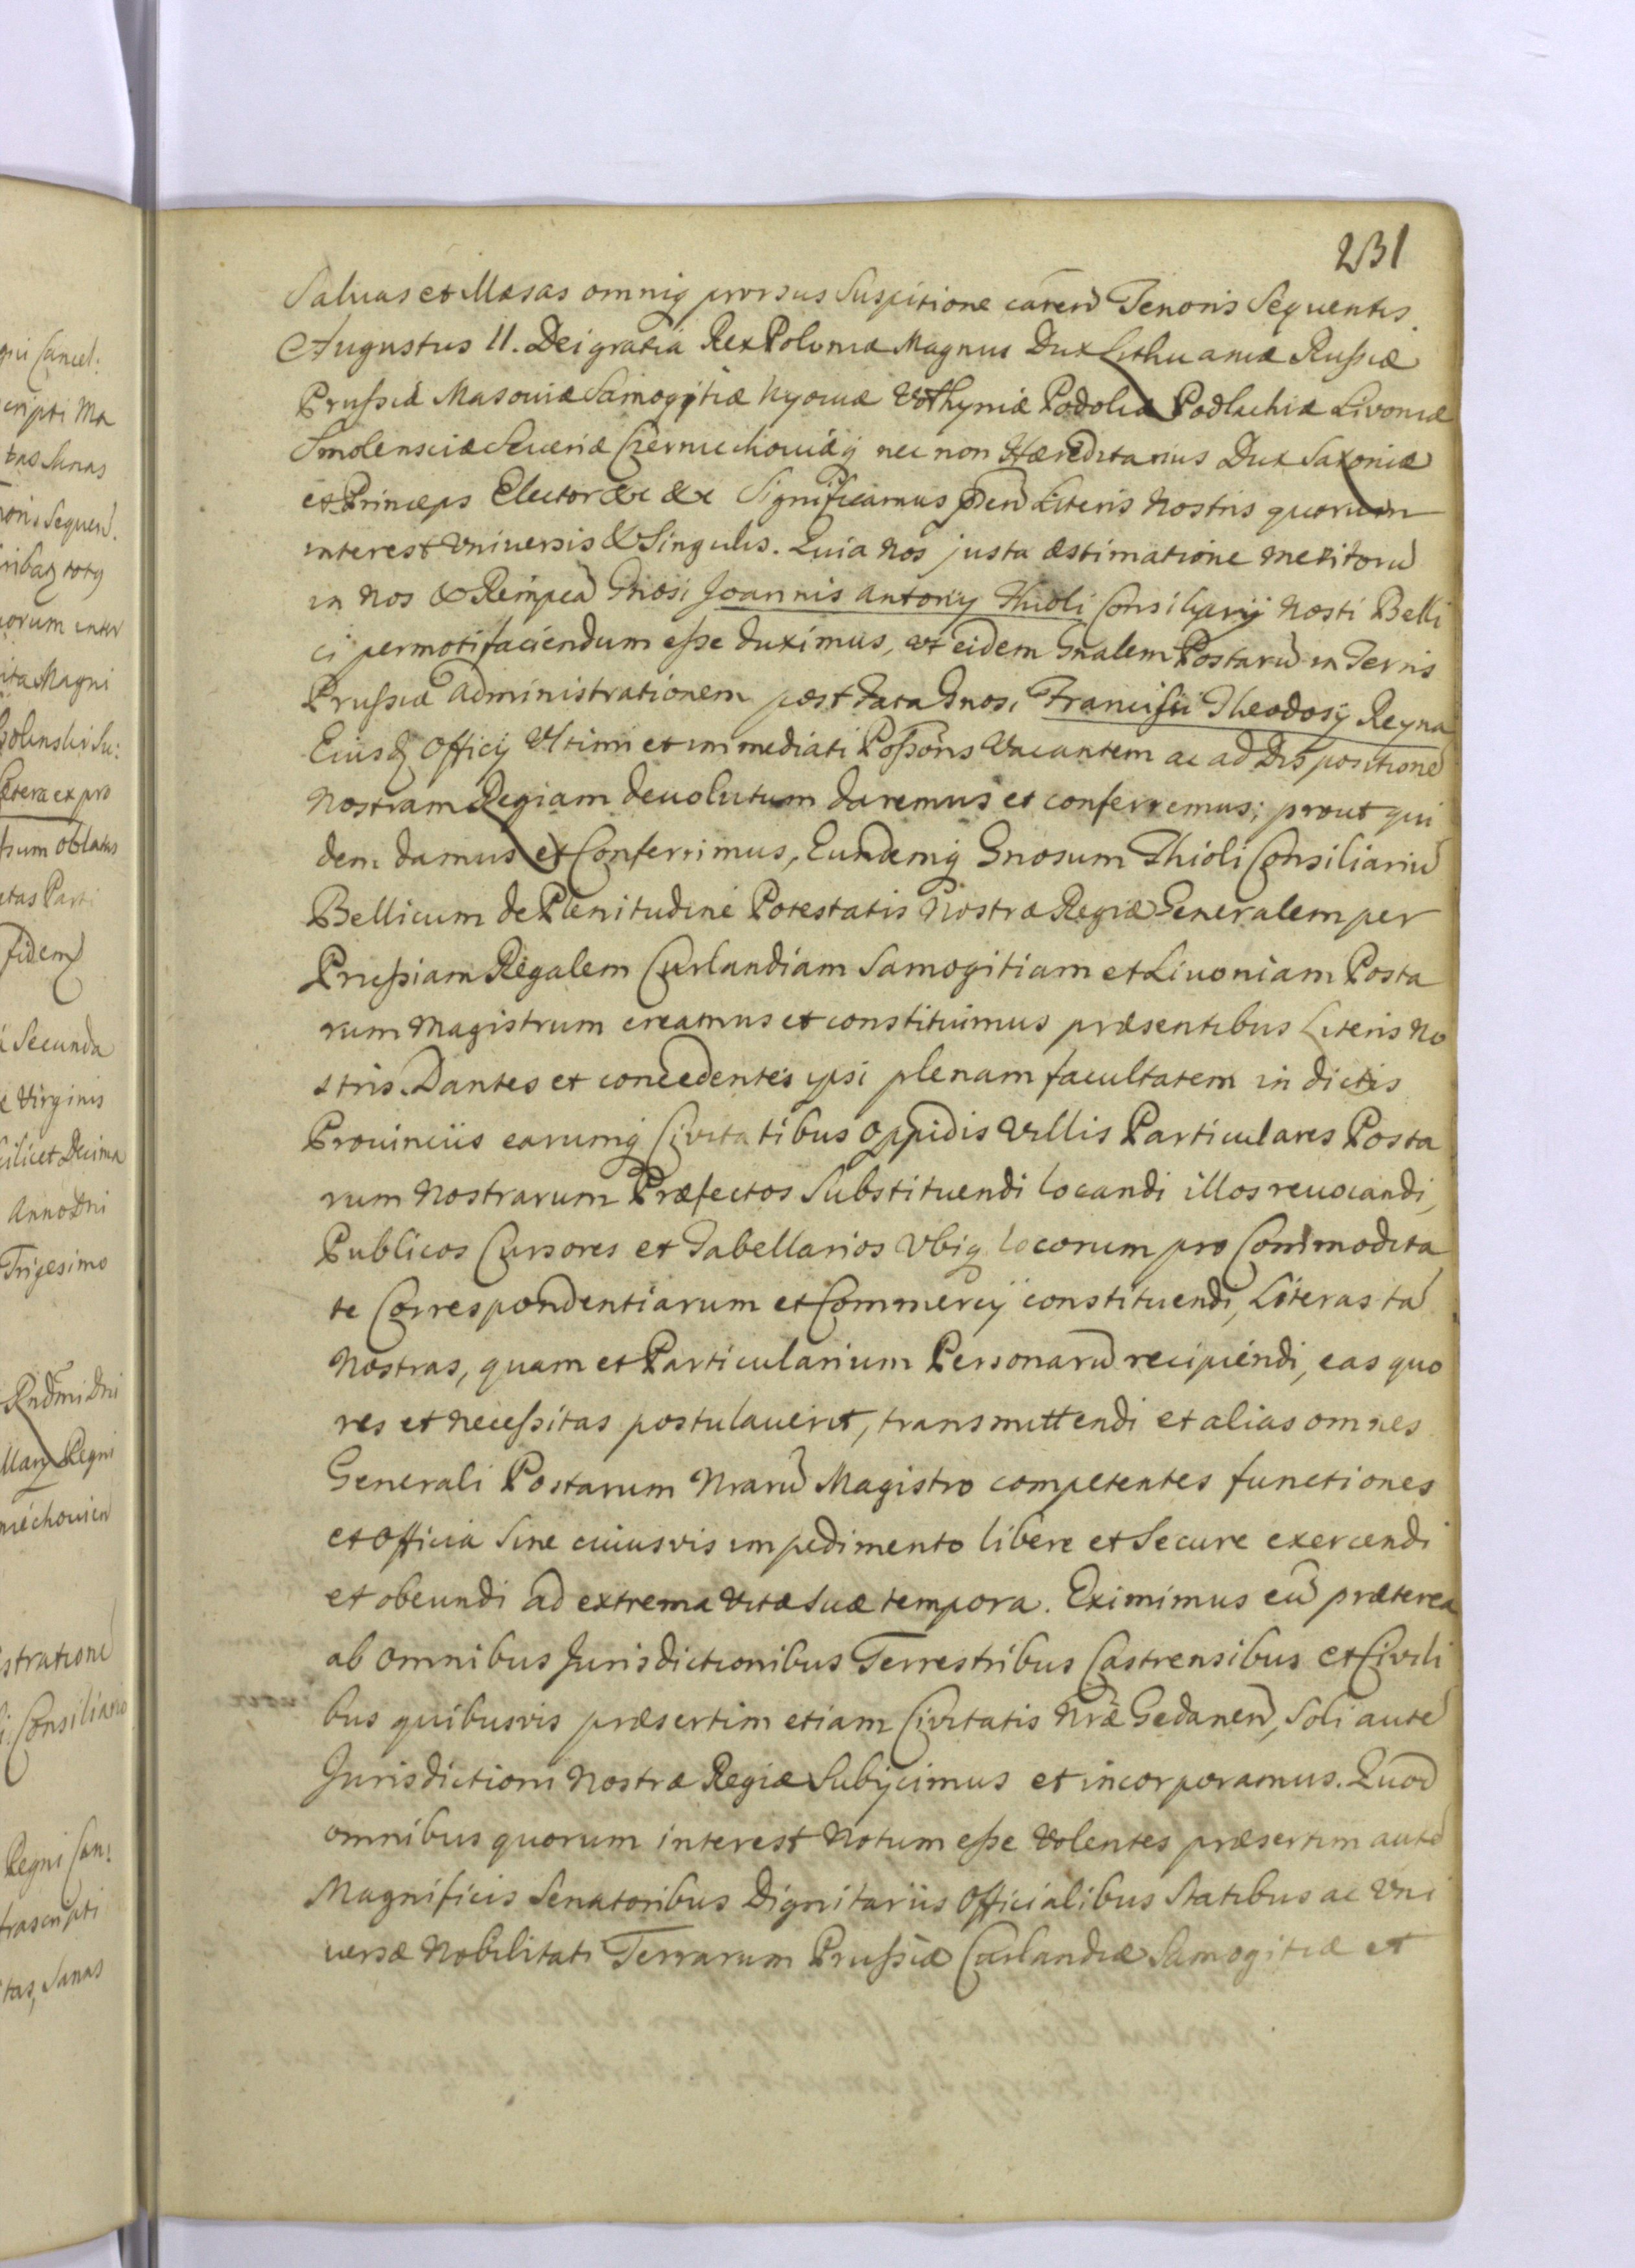 231
Saluas et Illæsas omniq̃ prorsus Suspitione careñ Tenoris Sequentis.
Augustus II. Dei gratia Rex Poloniæ Magnus Dux Lithuaniæ Russiæ
Prussiæ Masouiæ Samogitiæ Kyouiæ Volhyniæ Podoliæ Podlachiæ Livoniæ
Smolensciæ Seueriæ Czerniechouiæq̃ nec non Hæreditarius Dux Saxoniæ
et Princeps Elector &c &c Significamus pñeñ Literis Nostris quorum
interest Vniuersis & Singulis. Quia Nos justa æstimatione meritorũ
in Nos & Reimpcã Gnosi Joannis Antonij Thioli Consiliarij Nosti Belli
ci permoti faciendum esse duximus, vt eidem Gnalem Postarũ in Terris
Prussiæ administrationem post fata Gnosi Francisci Theodosij Reyna
Eiusdẽ Officij Vltimi et immediati Possõris Vacantem ac ad Dispositionẽ
Nostram Regiam deuolutam daremus et conferremus; prout qui
dem damus et Conferrimus, Eundemq̃ Gnosum Thioli Consiliariũ
Bellicum de Plenitudine Potestatis Nostræ Regiæ Generalem per
Prussiam Regalem Curlandiam Samogitiam et Liuoniam Posta
rum Magistrum creamus et constituimus præsentibus Literis No
stris. Dantes et concedentes ipsi plenam facultatem in dictis
Prouinciis earumq̃ Civitatibus Oppidis Villis Particulares Posta
rum Nostrarum Præfectos Substituendi locandi illos reuocandi,
Publicos Cursores et Tabellarios Vbiq̃ locorum pro Commodita
te Correspondentiarum et Commercij constituendi, Literas tã
Nostras, quam et Particularium Personarũ recipiendi, eas quo
res et necessitas postulauerit, transmittendi et alias omnes
Generali Postarum Nrarũ Magistro competentes functiones
et Officia Sine cuiusvis impedimento libere et Secure exercendi
et obeundi ad extrema vitæ Suæ tempora. Eximimus eũ præterea
ab omnibus Jurisdictionibus Terrestribus Castrensibus et Civili
bus quibusvis præsertim etiam Civitatis Nræ Gedaneñ, Soli autẽ
Jurisdictioni Nostræ Regiæ Subijcimus et incorporamus. Quod
omnibus quorum interest Notum esse Volentes præsertim autẽ
Magnificis Senatoribus Dignitariis Officialibus Statibus ac Vni
uersæ Nobilitati Terrarum Prussiæ Curlandiæ Samogitiæ et